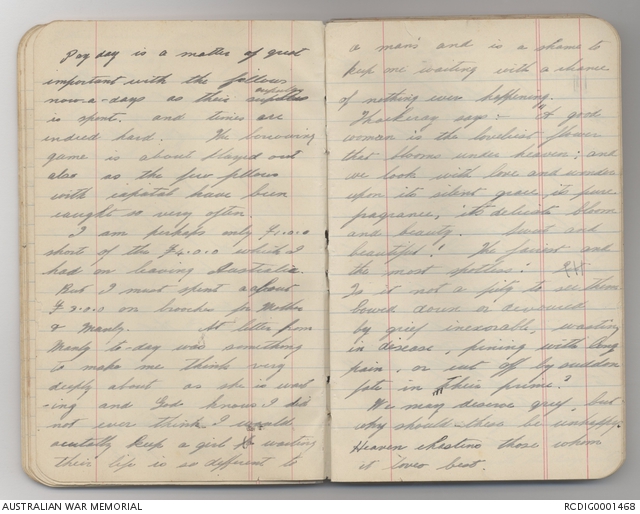 Pay day is a matter of great
important with the fellows
now-a-days as their surplus
is spent. and times are
indeed hard. The borrowing
game is about played out
also as the few fellows
with capital have been
caught so very often.
I am perhaps only £1.0.0
short of the £4.0.0 which I
had on leaving Australia.
But I must spent about
£2.0.0 on broches for Mother
& Manly. A letter from
Manly to-day was something
to make me think very
deeply about as she is wait
-ing and God knows I did
not ever think I would
acutally keep a girl waiting
their life is so different to
a man's and is a shame to
keep one waiting with a chance
of nothing ever happening.
Thackeray says:- "A good
woman is the loveliest flower
that blooms under heaven; and
we look with love and wonder
upon its silent grace, its pure
fragrance, its delicate bloom
and beauty. Sweet and
beautiful! The fairest and
the most spotless!
Is it not a pity to see them
bowed down or devoured
by grief inexorable, wasting
in disease, pining with long
pain, or cut off by sudden
fate in their prime?
We may deserve grief, but
why should these be unhappy.
Heaven chastens those whom
it loves best.
AUSTRALIAN WAR MEMORIAL
RCDIG0001468